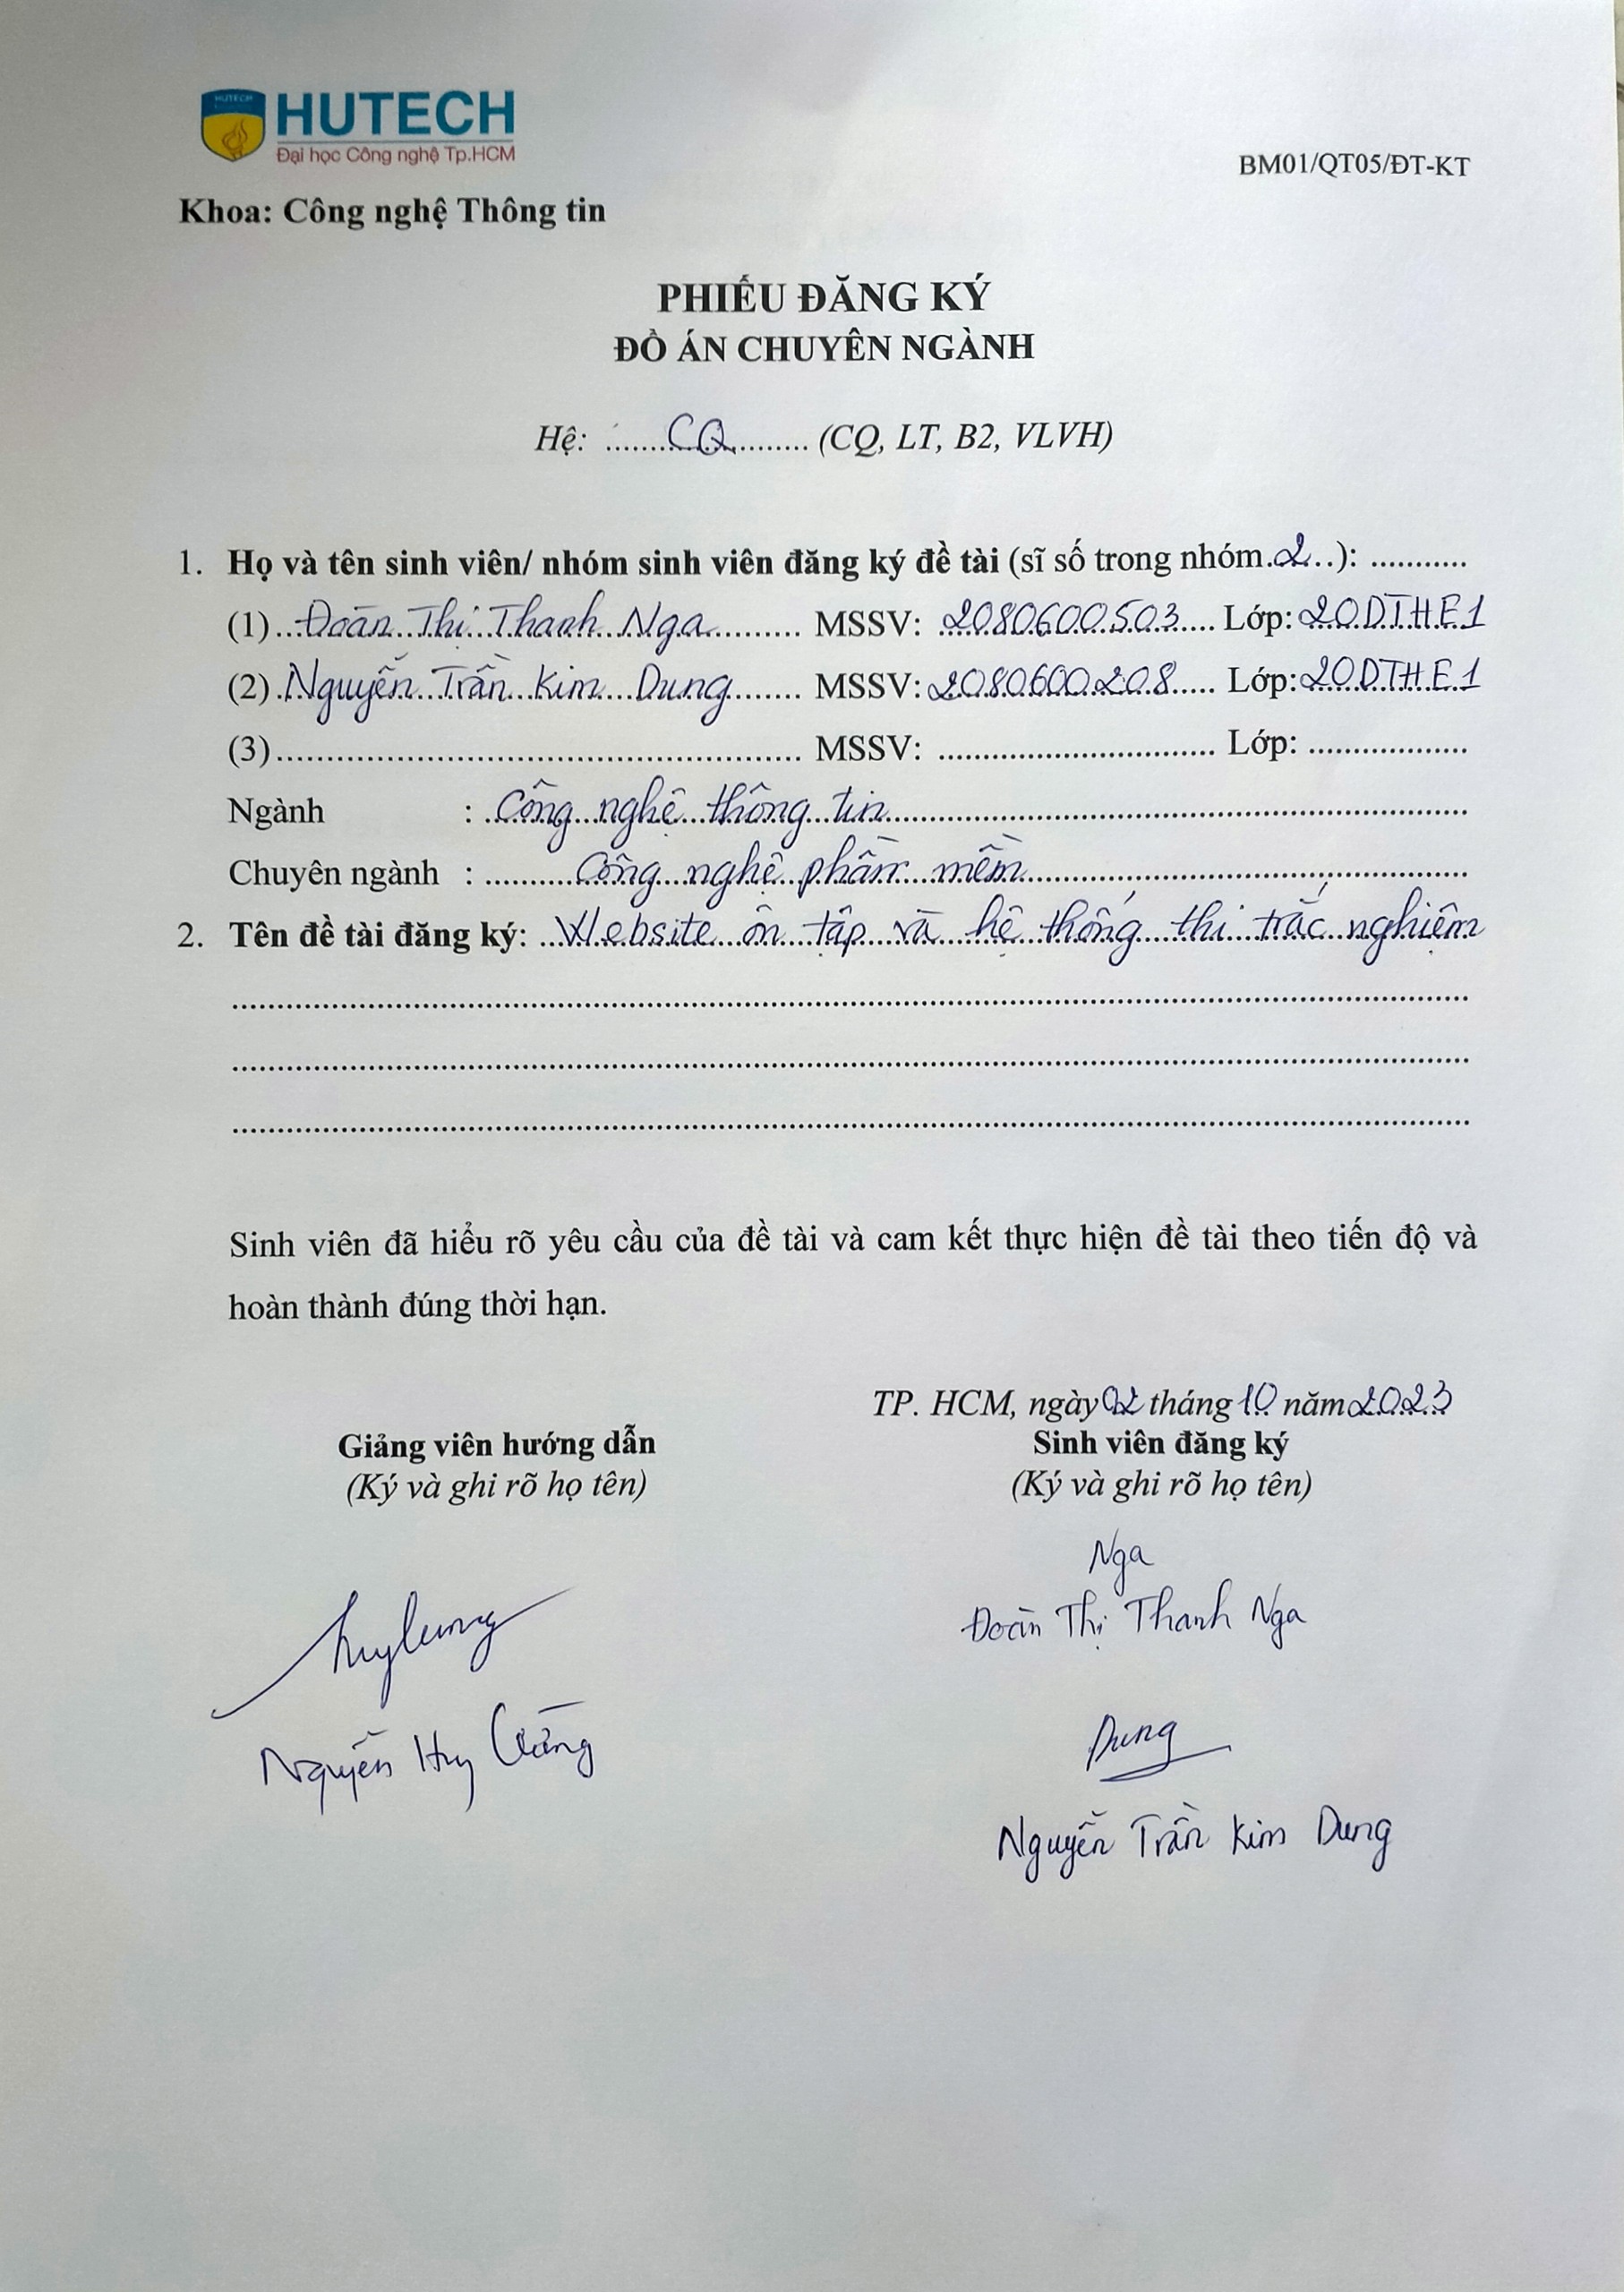 HUTECH
HUTECH
Đại học Công nghệ Tp.HCM
BM01/QT05/ĐT-KT
Khoa: Công nghệ Thông tin
PHIẾU ĐĂNG KÝ
ĐỒ ÁN CHUYÊN NGÀNH
Hệ: ........CQ.......... (CQ, LT, B2, VLVH)
1. Họ và tên sinh viên/ nhóm sinh viên đăng ký đề tài (sĩ số trong nhóm.2...): ...........
(1)...Đoàn Thị Thanh Nga.......... MSSV: 2080600503.... Lớp: 20DTHE1
(2).Nguyễn Trần Kim Dung....... MSSV: 2080600208..... Lớp: 20DTHE1
(3).......................................................... MSSV: ............................... Lớp: ..................
Ngành : ..Công nghệ thông tin................................................................
Chuyên ngành : ..........Công nghệ phần mềm.................................................
2. Tên đề tài đăng ký: ..Website ôn tập và hệ thống thi trắc nghiệm
................................................................................................................................
................................................................................................................................
................................................................................................................................
Sinh viên đã hiểu rõ yêu cầu của đề tài và cam kết thực hiện đề tài theo tiến độ và
hoàn thành đúng thời hạn.
TP. HCM, ngày 02 tháng 10 năm 2023
Giảng viên hướng dẫn Sinh viên đăng ký
(Ký và ghi rõ họ tên) (Ký và ghi rõ họ tên)
Nga
Đoàn Thị Thanh Nga
Nguyễn Huy Cường
Dung
Nguyễn Trần Kim Dung